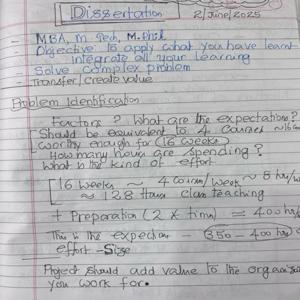 Dissertation
2/June/2025
- MBA, M Tech, M.Phil
- Objective to apply what you have learnt
integrate all your learning
- Solve complex problem
- Transfer/create value
Problem Identification
Factors ? What are the expectations?
Should be equivalent to 4 courses ~16
worthy enough for (16 weeks)
How many hours are spending?
What is the kind of effort
16 weeks ~ 4 Course/week ~ 8 hrs/w
≈ 128 Hours class teaching
+ Preparation (2 * time) = 400 hrs
This is the expection - (350 - 400 hrs)
effort - Size
Project should add value to the
you work for.